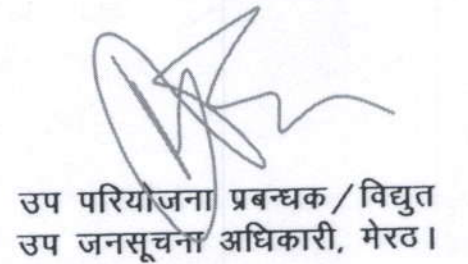 उप परियोजना प्रबन्धक / विद्युत
उप जनसूचना अधिकारी, मेरठ।